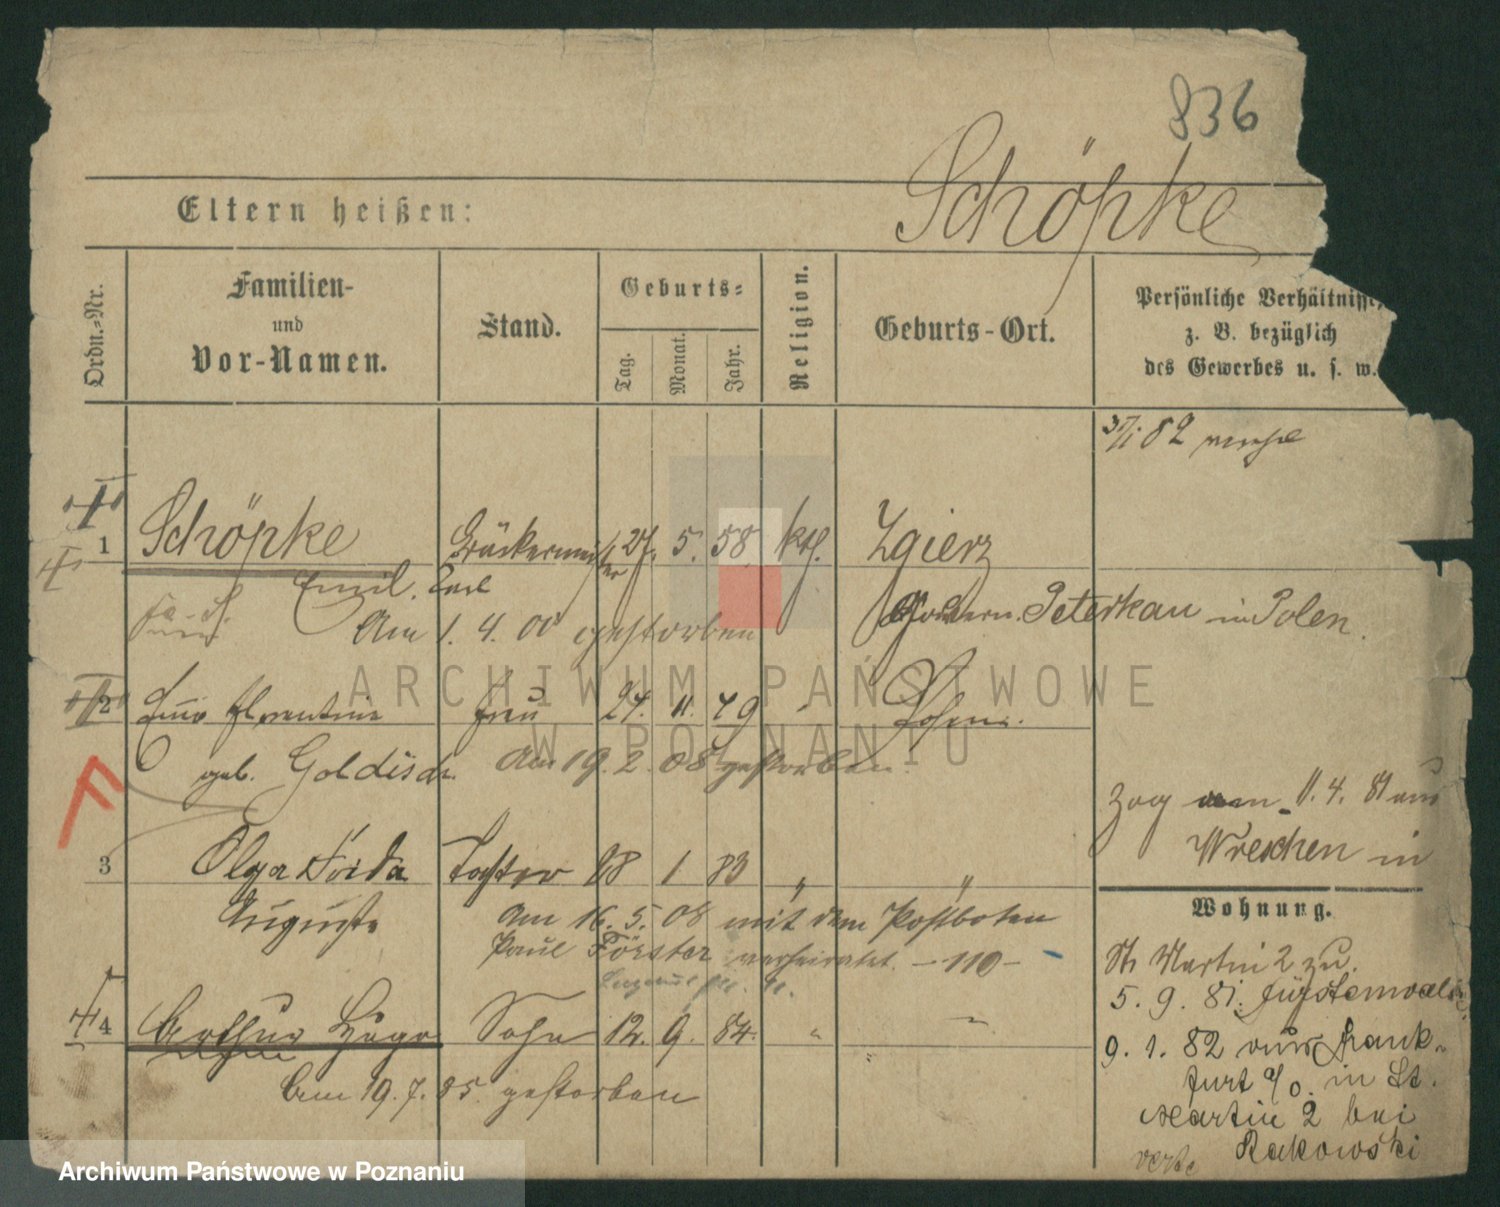 836
Schöpke
Eltern heißen:
Ordn.-Nr.
Familien-
und
Vor-Namen.
Stand.
Geburts-
Tag.
Monat.
Jahr.
Religion.
Geburts-Ort.
Persönliche Verhältnisse,
z. B. bezüglich
des Gewerbes u. s. w.
82
1 Schöpke 27. 5. 58 kth. Zgierz
Emil, Carl
Gouvern. Peterkau in Polen.
Am 1. 4. 00 gestorben
2 Florentine Frau 24. 11. 49 Posen.
geb. Goldisch. Am 19. 2. 08 gestorben.
zog 11. 4. 81 aus
Wreschen in
3 Olga Frida Tochter 28 1 83 " "
Auguste
Am 16. 5. 08 mit dem Postboten
Paul Förster verheiratet. -110-
Wohnung.
St. Martin 2 zu.
5. 9. 81. Fürstenwalde
4 Arthur Hugo Sohn 12. 9. 84. " "
9. 1. 82 aus Frank-
furt a/O. in St.
Martin 2 bei
Rakowski
Am 19. 7. 85. gestorben
ARCHIWUM PAŃSTWOWE
W POZNANIU
Archiwum Państwowe w Poznaniu